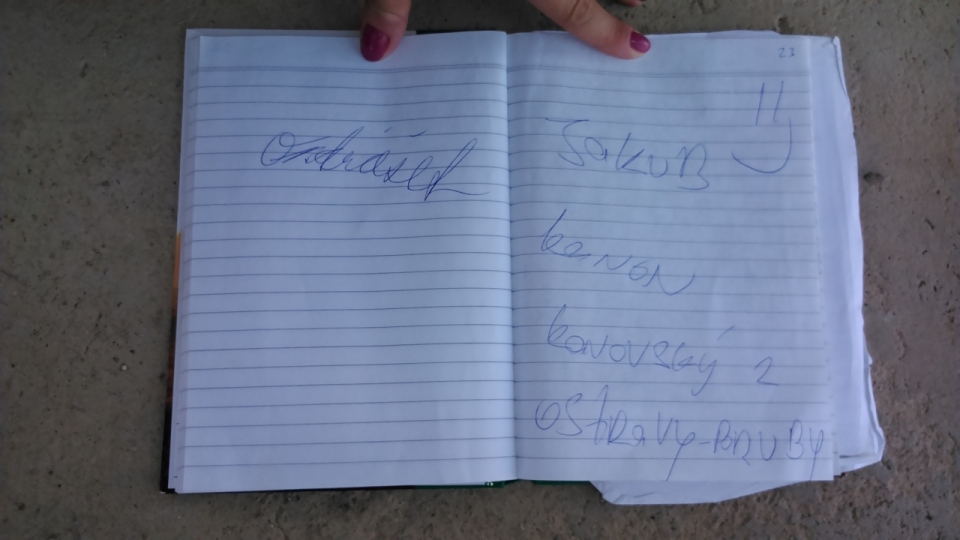 Ostrášek
23
Jakub
kanon
kanovský z
Ostravy-Poruby